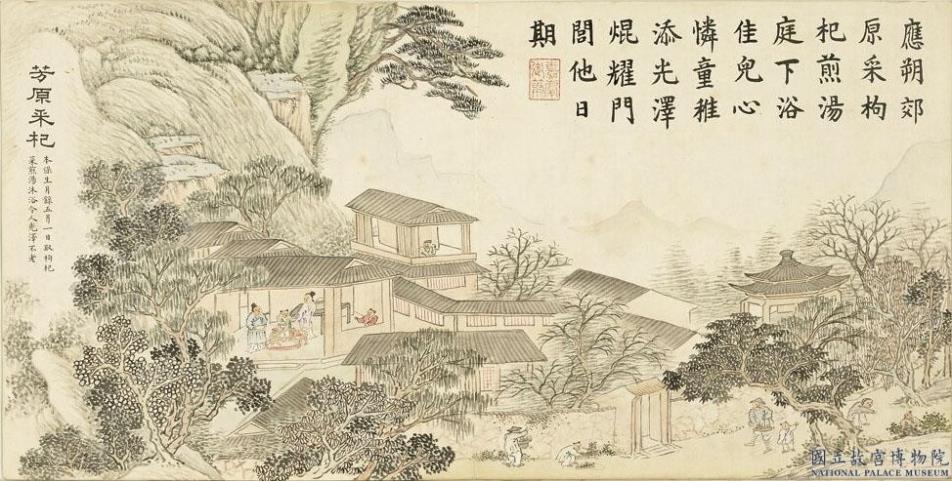 應朔郊
原采枸
杞煎湯
庭下浴
佳兒心
憐童稚
添光澤
焜耀門
閭他日
期
芳原采杞
本保生月錄五月一日取枸杞
菜煎湯沐浴令人光澤不老
國立故宮博物院
NATIONAL PALACE MUSEUM